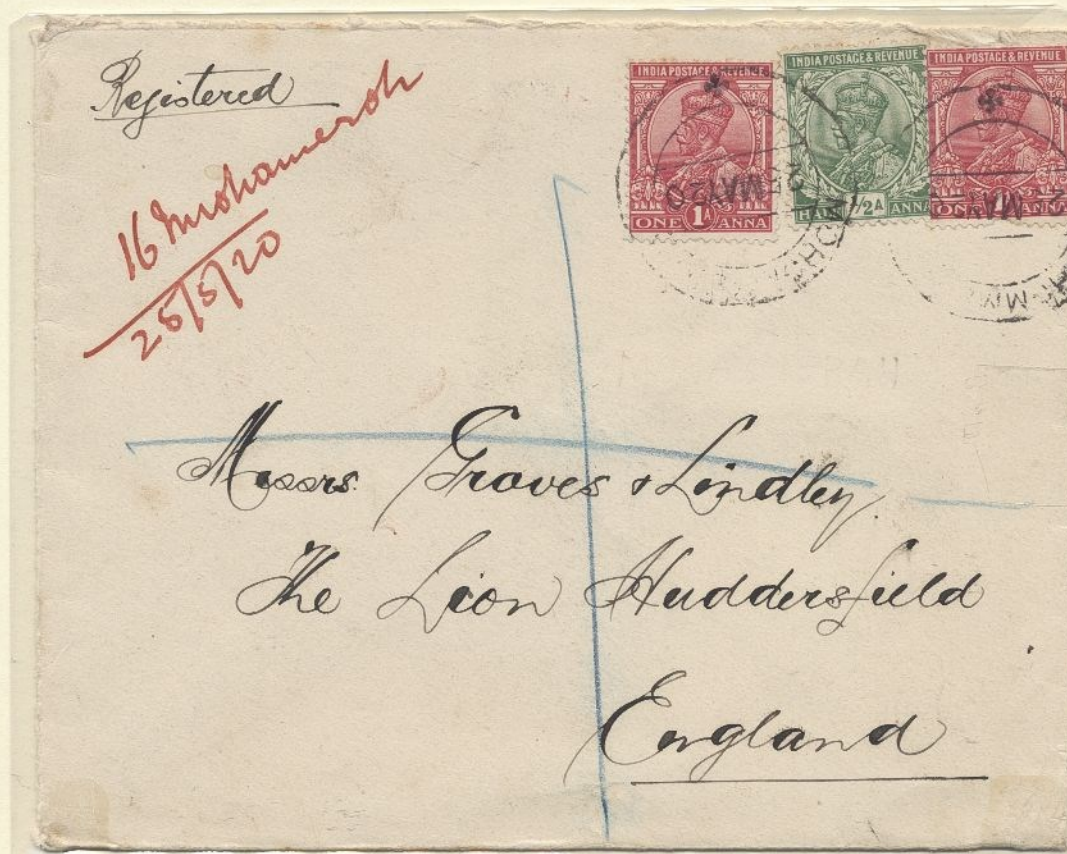 Registered
16 Mohamerah
25/5/20
INDIA POSTAGE & REVENUE
ONE 1A ANNA
INDIA POSTAGE & REVENUE
HALF 1/2A ANNA
INDIA POSTAGE & REVENUE
MAY 20
MAY
Messrs Graves & Lindley
The Lion Huddersfield
England